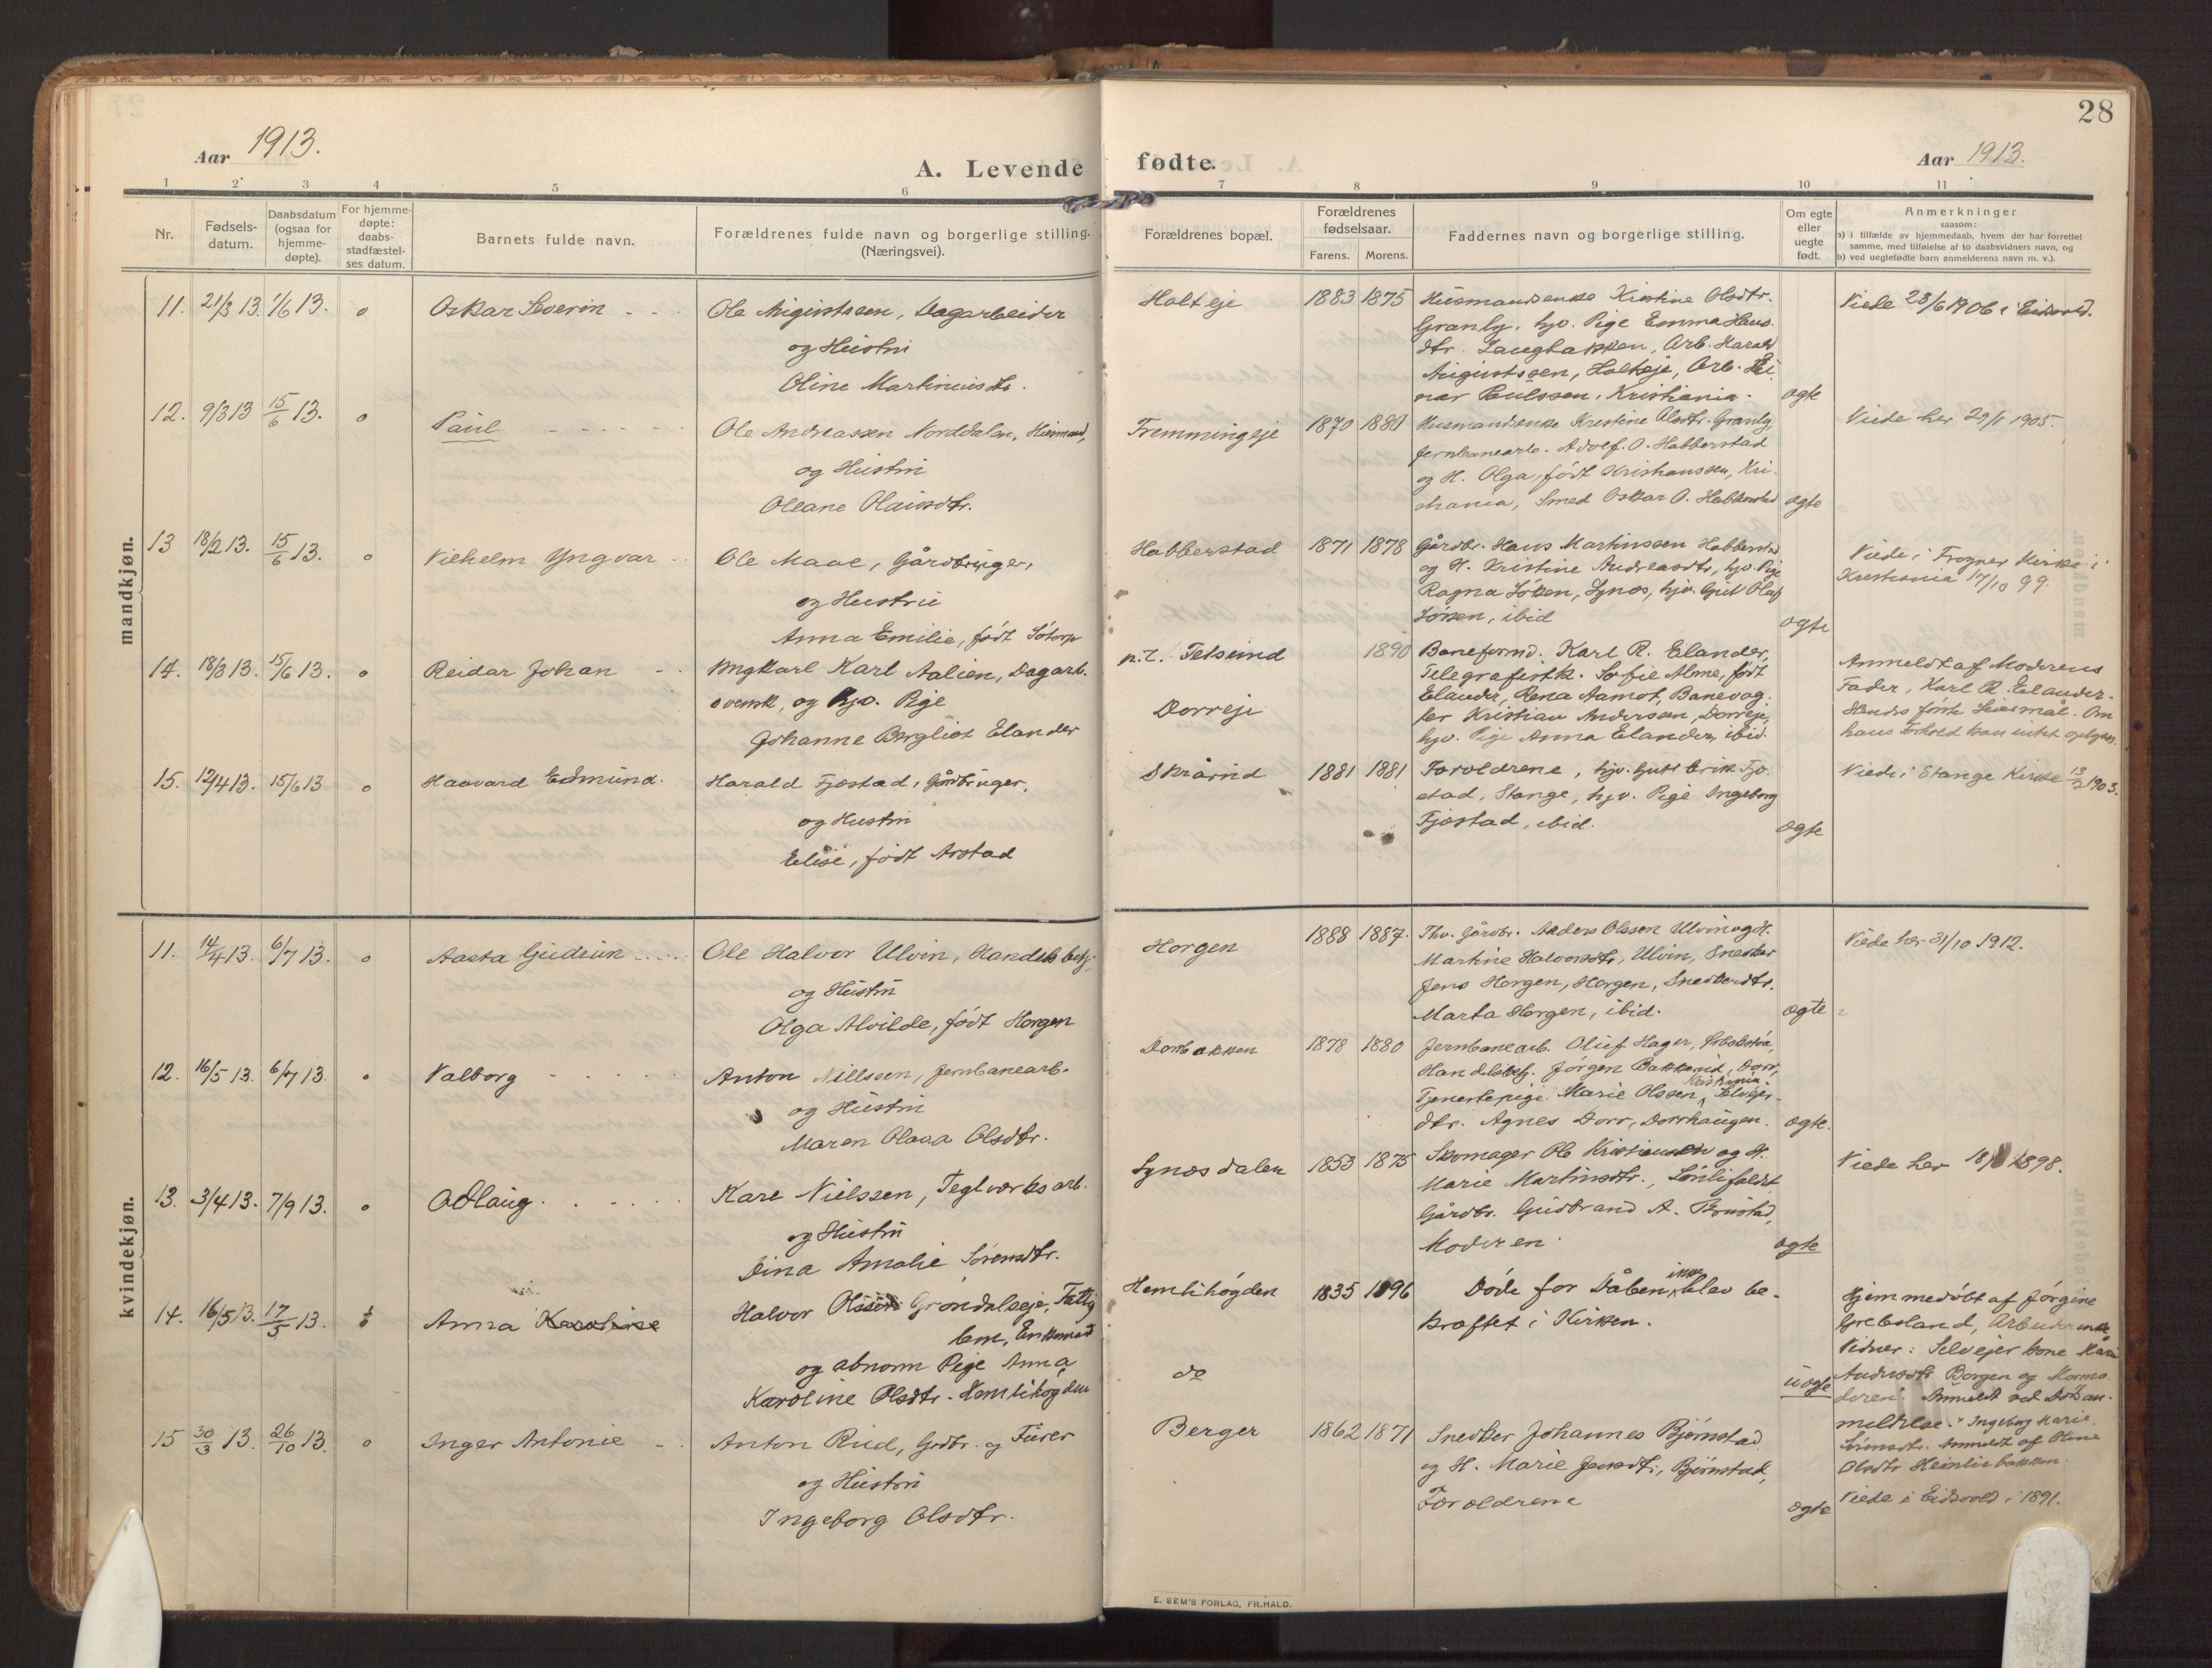 28
Aar 1913.
A. Levende fødte.
Aar 1913.
1 2 3 4 5 6 7 8 9 10 11
Nr.
Fødsels-
datum.
Daabsdatum
(ogsaa for
hjemme-
døpte).
For hjemme-
døpte:
daabs-
stadfæstel-
ses datum.
Barnets fulde navn.
Forældrenes fulde navn og borgerlige stilling.
(Næringsvei).
Forældrenes bopæl.
Forældrenes
fødselsaar.
Farens. Morens.
Faddernes navn og borgerlige stilling.
Om egte
eller
uegte
født.
Anmerkninger
saasom:
a) i tilfælde av hjemmedaab, hvem der har forrettet
samme, med tilføielse af to daabsvidners navn, og
b) ved uegtefødte barn anmelderens navn m. v.).
mandkjøn.
11. 21/3 13. 1/6 13. o Oskar Severin
Ole Augustssen, Dagarbeider
og Hustru
Oline Martinusdtr.
Holteje 1883 1875
Husmandsenke Kristine Olsdtr.
Granly, hjv. Pige Emma Hans-
dtr. Laugbakken, Arb. Harald
Augustssen, Holteje, Arb. Ei-
nar Paulssen, Kristiania.
ægte
Viede 23/6 1906 i Eidsvold.
12. 9/3 13 15/6 13. o Paul
Ole Andreassen Norddalen, Husmand,
og Hustru
Oleane Olausdtr.
Fremmingeje 1870 1880
Husmandsenke Kristine Olsdtr. Granly,
Jernbanearb. Adolf. O. Habberstad
og H. Olga, født Kristianssen, Kri-
stiania, Smed Oskar O. Habberstad
ægte
Viede her 29/1 1905.
13 18/2 13. 15/6 13. o Vilhelm Yngvar
Ole Maae, Gårdbruger,
og Hustru
Anna Emilie, født Sotorp
Habberstad 1871 1878
Gårdbr. Hans Martinssen Habberstad
og H. Kristine Andreasdtr, hjv. Pige
Ragna Løken, Synæs, hjv. Gut Olaf
Løken, ibid
ægte
Viede i Frogner Kirke i
Kristiania 17/10 99.
14. 18/3 13. 15/6 13. o Reidar Johan
Ungkarl Karl Aalien, Dagarb.
svensk, og hjv. Pige
Johanne Bergliot Elander
p.t. Telsund
Dorreje
1890
Baneformd. Karl R. Elander,
Telegrafistk. Sofie Alme, født
Elander, Rena Aamot, Banevog-
ter Kristian Anderssen, Dorreje,
hjv. Pige Anna Elander, ibid.
Anmeldt af Moderens
Fader, Karl R. Elander.
Hendes første Leiermål. Om
hans Forhold kan intet oplyses.
15. 12/4 13. 15/6 13 o Haavard Edmund.
Harald Fjæstad, Gårdbruger,
og Hustru
Elise, født Arstad
Skrårud 1881 1881
Forældrene, hjv. Gut Erik Fjæ-
stad, Stange, hjv. Pige Ingeborg
Fjæstad, ibid.
ægte
Viede i Stange Kirke 1903.
kvindekjøn.
11. 14/4 13. 6/7 13. o Aasta Gudrun
Ole Halvor Ulvin, Handelsbetj.
og Hustru
Olga Alvilde, født Horgen
Horgen 1888 1887.
Fhv. Gårdbr. Anders Olssen Ulvin og H.
Martine Halvorsdtr, Ulvin, Snedker
Jens Horgen, Horgen, Snedkerdtr.
Marta Horgen, ibid.
ægte
Viede her 31/10 1912.
12. 16/5 13. 6/7 13. o Valborg
Anton Nilssen, Jernbanearb.
og Hustru
Maren Olava Olsdtr.
Dorrbakken 1878 1880
Jernbanearb. Oluf Hager,
Handelsbetj. Jørgen Bakkerud, Dorr,
Tjenestepige Marie Olssen, Kristiania, Selvejer-
dtr. Agnes Dorr, Dorrhaugen.
ægte.
13. 3/4 13. 7/9 13. o Odlaug
Karl Nielssen, Teglværksarb.
og Hustru
Dina Amalie Sørensdtr.
Synæsdalen 1853 1875
Skomager Ole Kristiansen og H.
Marie Martinsdtr.,
Gårdbr. Gudbrand A. Bønstad,
Moderen.
ægte
Viede her 1898.
14. 16/5 13. 17/5 13. Anna Karoline
Halvor Olssen Grøndalseje, Fattig-
lem, Enkemand
og abnorm Pige Anna
Karoline Olsdtr. Hemlihøgden
Hemlihøgden
do
1835 1896
Døde før Dåben ikke blev be-
kræftet i Kirken.
uægte
Hjemmedøbt af Jørgine
Grebsland, Arbeiderenke
Vidner: Selvejerkone Maria
Andersdtr Borgen og Mormo-
deren. Anmeldt ved Dødsan-
meldelse. Ingeborg Marie
Sørensdtr. Anmeldt af Oline
Olsdtr Hemlibakken.
15 30/3 13. 26/10 13. o Inger Antonie
Anton Rud, Grdbr. og Furer
og Hustru
Ingeborg Olsdtr.
Berger 1862 1871
Snedker Johannes Bjørnstad
og H. Marie Jensdtr, Bjørnstad,
Forældrene
ægte
Viede i Eidsvold i 1891.
E. SEM'S FORLAG, FR.HALD.